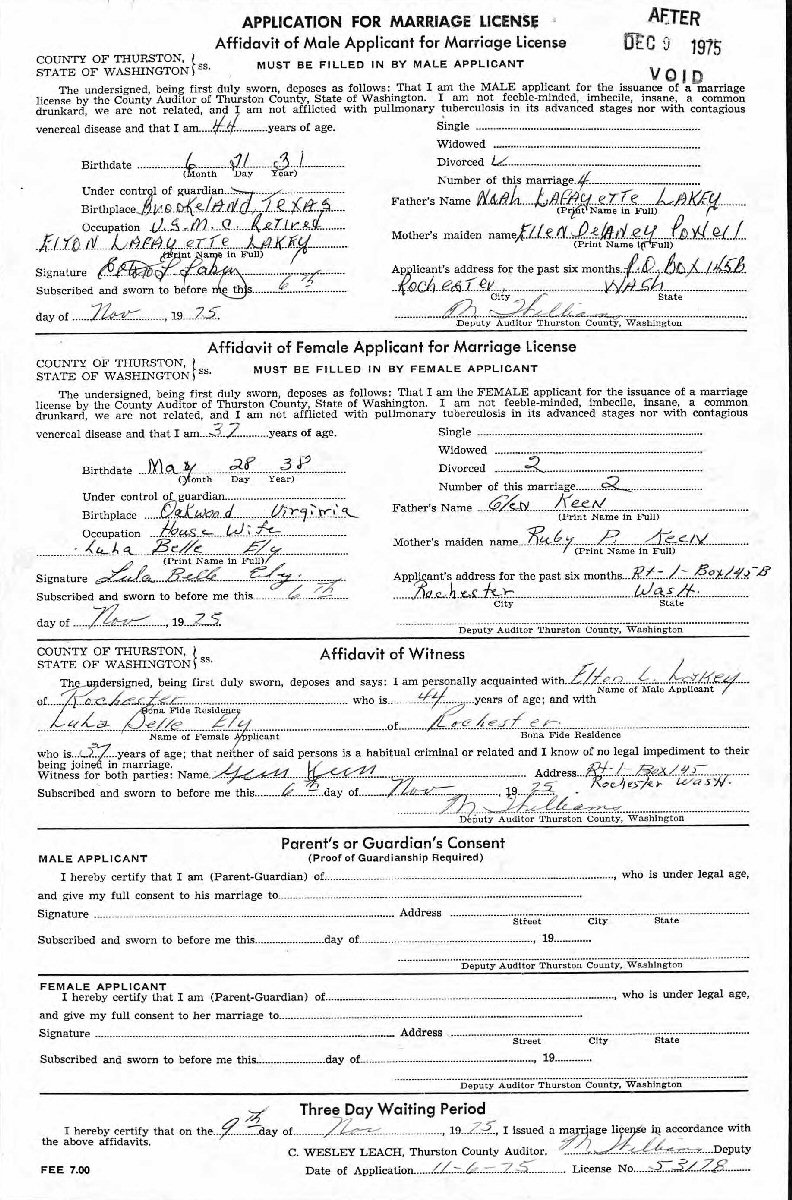 APPLICATION FOR MARRIAGE LICENSE
AFTER
DEC 9 1975
VOID
Affidavit of Male Applicant for Marriage License
MUST BE FILLED IN BY MALE APPLICANT
COUNTY OF THURSTON,
STATE OF WASHINGTON } ss.
The undersigned, being first duly sworn, deposes as follows: That I am the MALE applicant for the issuance of a marriage
license by the County Auditor of Thurston County, State of Washington. I am not feeble-minded, imbecile, insane, a common
drunkard, we are not related, and I am not afflicted with pullmonary tuberculosis in its advanced stages nor with contagious
venereal disease and that I am 44 years of age.
Single
Widowed
Birthdate 6 21 31
(Month Day Year)
Divorced
Number of this marriage 4
Under control of guardian
Birthplace Brookeland, Texas
Father's Name Noah LAFAYETTE LAKEY
(Print Name in Full)
Occupation U.S.M.C. Retired
ELTON LAFAYETTE LAKEY
(Print Name in Full)
Mother's maiden name Ellen DeLaney Powell
(Print Name in Full)
Signature Elton L Lakey
Applicant's address for the past six months P.O. BOX 145B
Rochester, WASH
City State
Subscribed and sworn to before me this 6th
day of Nov, 1975.
M. Williams
Deputy Auditor Thurston County, Washington
Affidavit of Female Applicant for Marriage License
MUST BE FILLED IN BY FEMALE APPLICANT
COUNTY OF THURSTON,
STATE OF WASHINGTON } ss.
The undersigned, being first duly sworn, deposes as follows: That I am the FEMALE applicant for the issuance of a marriage
license by the County Auditor of Thurston County, State of Washington. I am not feeble-minded, imbecile, insane, a common
drunkard, we are not related, and I am not afflicted with pullmonary tuberculosis in its advanced stages nor with contagious
venereal disease and that I am 37 years of age.
Single
Widowed
Birthdate May 28 38
(Month Day Year)
Divorced 2
Number of this marriage 2
Under control of guardian
Birthplace Oakwood Virginia
Father's Name Glen Keen
(Print Name in Full)
Occupation House Wife
Luha Belle Ely
(Print Name in Full)
Mother's maiden name Ruby P. Keen
(Print Name in Full)
Signature Lula Belle Ely.
Applicant's address for the past six months Rt-1-Box 145 B
Rochester Wash.
City State
Subscribed and sworn to before me this 6th
day of Nov, 1975.
Deputy Auditor Thurston County, Washington
COUNTY OF THURSTON,
STATE OF WASHINGTON } ss.
Affidavit of Witness
The undersigned, being first duly sworn, deposes and says: I am personally acquainted with Elton L. Lakey
Name of Male Applicant
of Rochester who is 44 years of age; and with
Bona Fide Residence
Luha Belle Ely of Rochester
Name of Female Applicant Bona Fide Residence
who is 37 years of age; that neither of said persons is a habitual criminal or related and I know of no legal impediment to their
being joined in marriage.
Witness for both parties: Name Keen Address Rt-1 Box 145
Rochester Wash.
Subscribed and sworn to before me this 6th day of Nov, 1975
M. Williams
Deputy Auditor Thurston County, Washington
Parent's or Guardian's Consent
(Proof of Guardianship Required)
MALE APPLICANT
I hereby certify that I am (Parent-Guardian) of, who is under legal age,
and give my full consent to his marriage to
Signature Address
Street City State
Subscribed and sworn to before me this day of, 19
Deputy Auditor Thurston County, Washington
FEMALE APPLICANT
I hereby certify that I am (Parent-Guardian) of, who is under legal age,
and give my full consent to her marriage to
Signature Address
Street City State
Subscribed and sworn to before me this day of, 19
Deputy Auditor Thurston County, Washington
Three Day Waiting Period
I hereby certify that on the 9th day of Nov, 1975, I issued a marriage license in accordance with
the above affidavits.
C. WESLEY LEACH, Thurston County Auditor. M Williams Deputy
FEE 7.00
Date of Application 11-6-75 License No. 53178